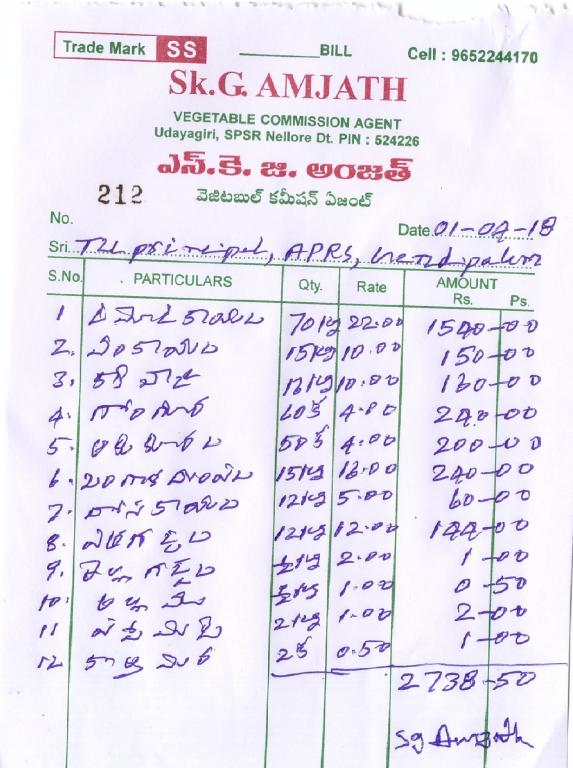 Trade Mark SS ________BILL Cell : 9652244170
Sk.G. AMJATH
VEGETABLE COMMISSION AGENT
Udayagiri, SPSR Nellore Dt. PIN : 524226
ఎస్.కె. జి. అంజత్
212 వెజిటబుల్ కమీషన్ ఏజంట్
No.
Date. 01-04-18
Sri. The principal, APRS,
S.No. PARTICULARS Qty. Rate AMOUNT Rs. Ps.
1 70 kg 22.00 1540-00
2. వంకాయలు 15 kg 10.00 150-00
3. 10.00
4. గోంగూర 4.00 240-00
5. ఆకు కూరలు 4.00 200-00
6. 15 kg 240-00
7. దోసకాయలు 12 kg 5.00 60-00
8. ఎర్రగడ్డలు 12 kg 12.00 144-00
9. తెల్లగడ్డలు ½ kg 2.00 1-00
10. అల్లం ½ kg 1.00 0-50
11 పచ్చిమిర్చి 2 kg 1.00 2-00
12 0.50 1-00
2738-50